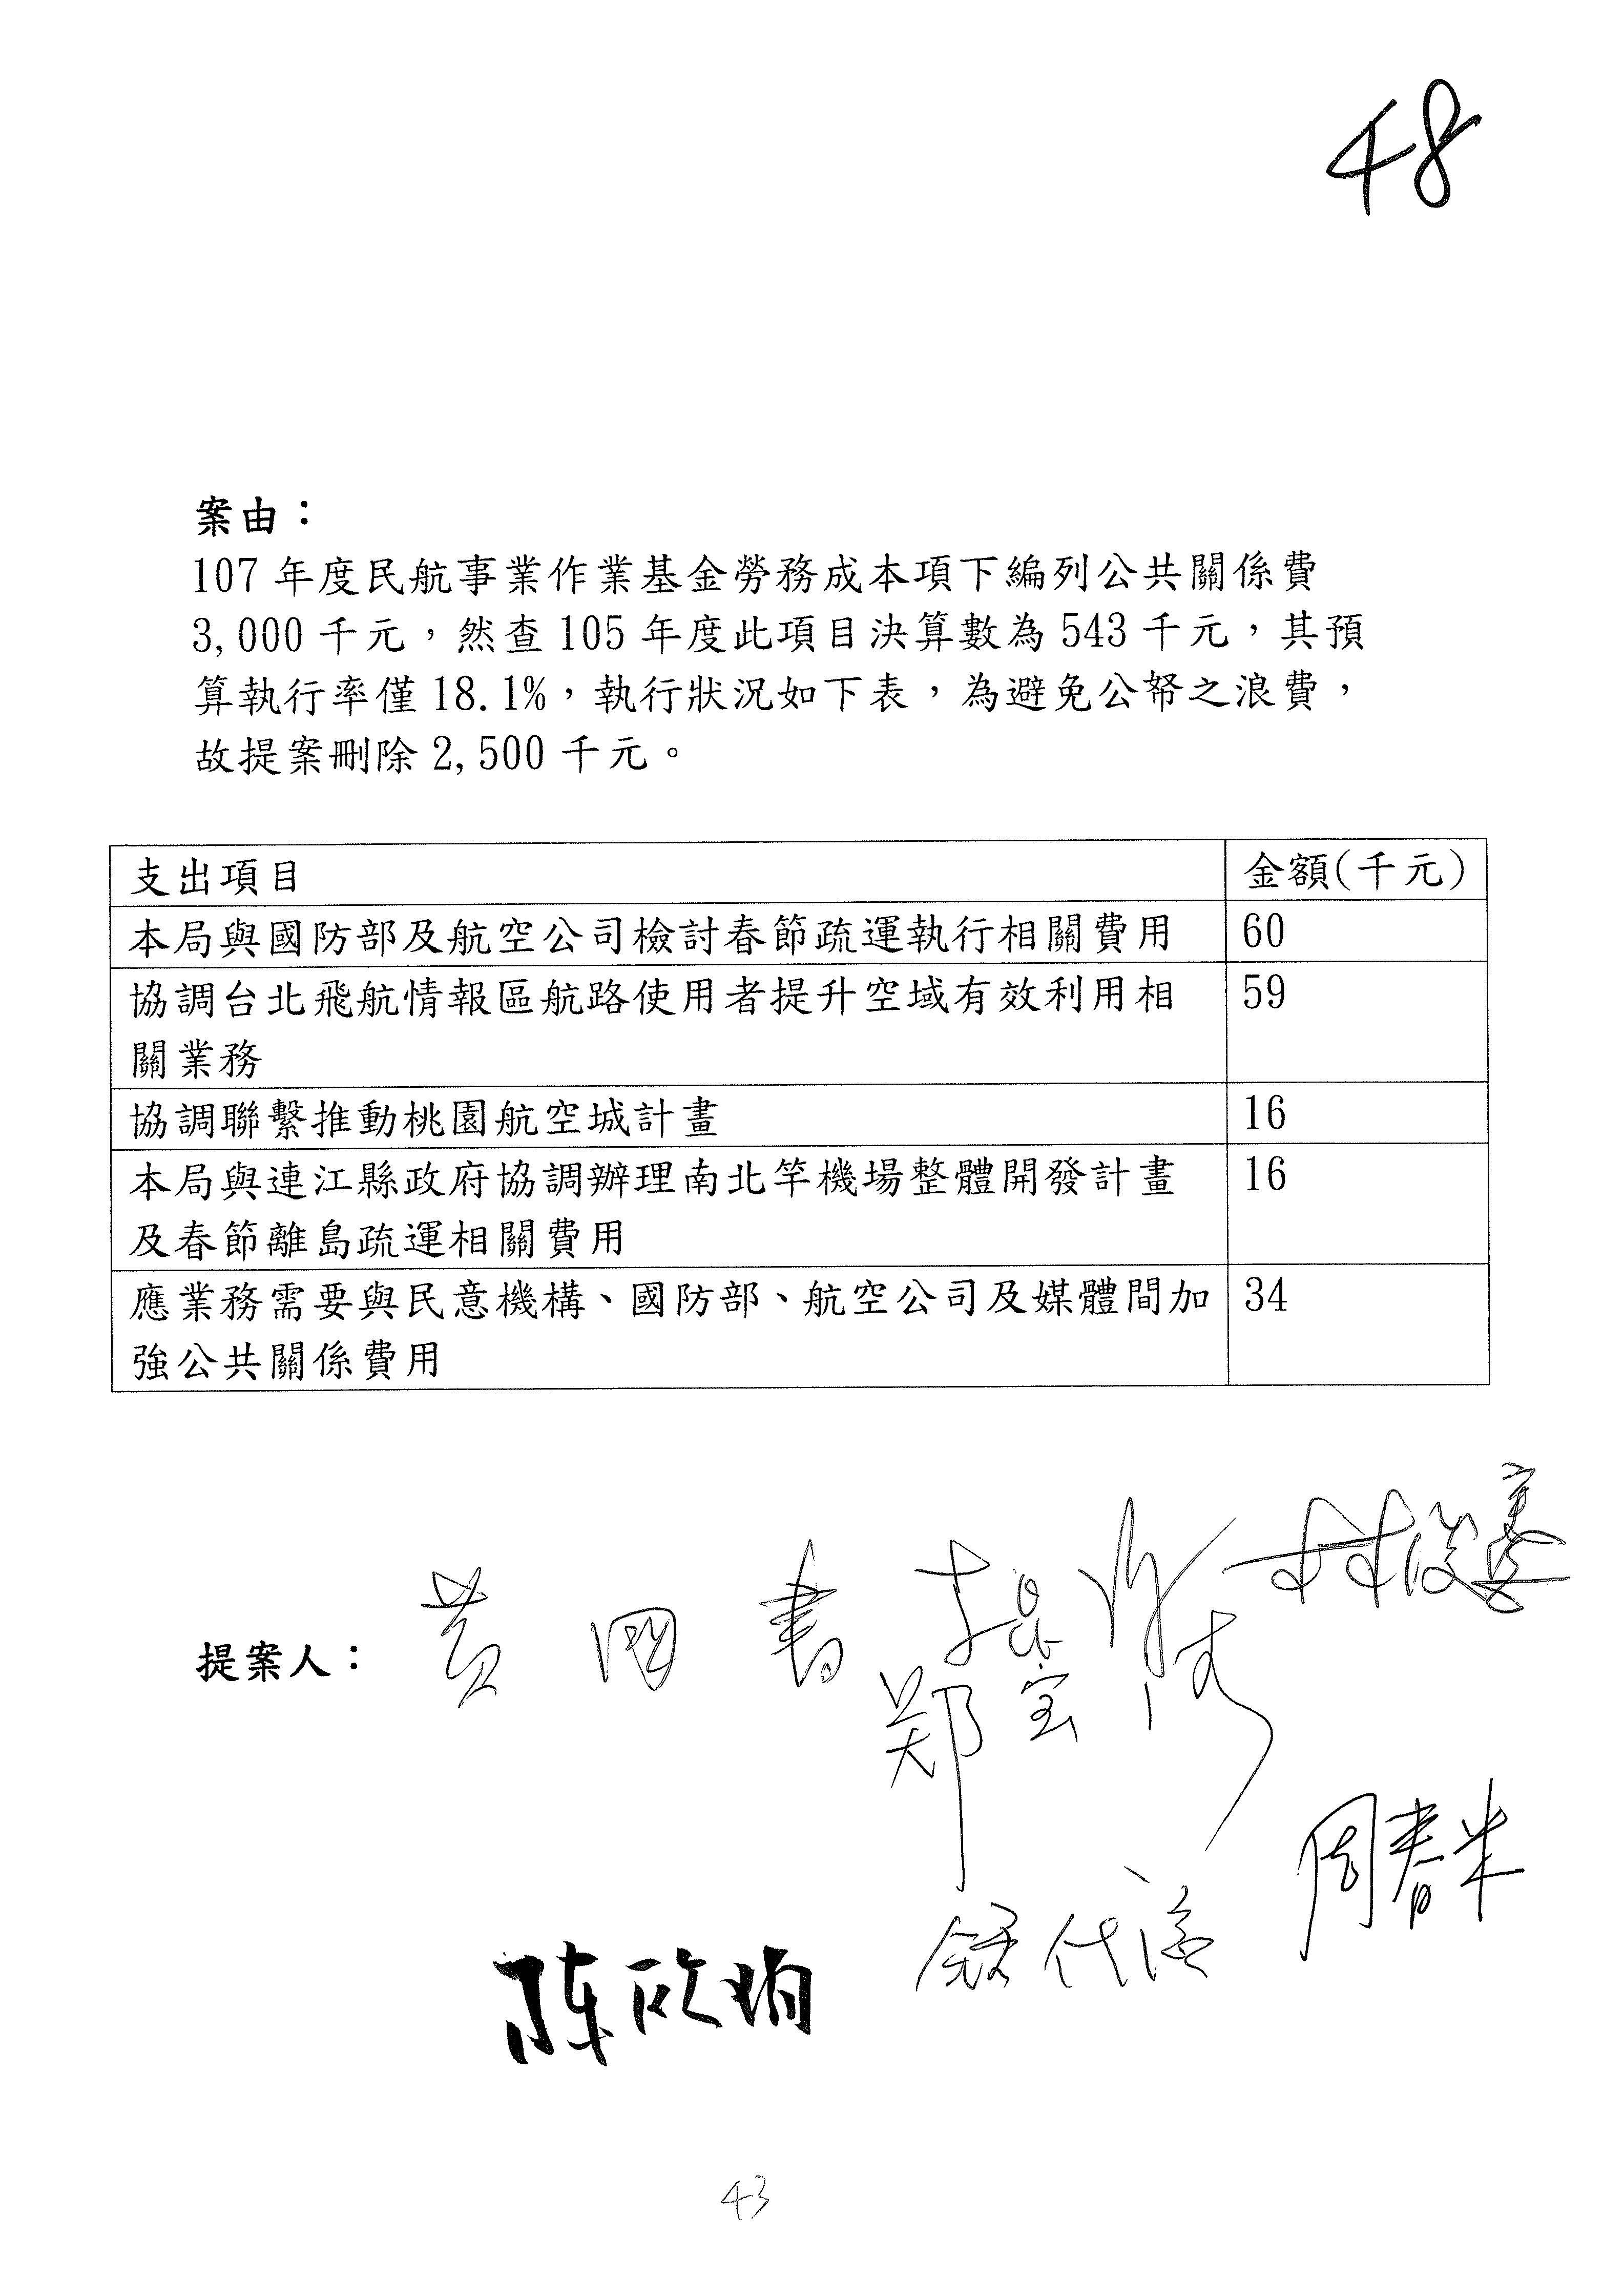 48
案由：
107 年度民航事業作業基金勞務成本項下編列公共關係費
3,000 千元，然查 105 年度此項目決算數為 543 千元，其預
算執行率僅 18.1%，執行狀況如下表，為避免公帑之浪費，
故提案刪除 2,500 千元。
支出項目 金額(千元)
本局與國防部及航空公司檢討春節疏運執行相關費用 60
協調台北飛航情報區航路使用者提升空域有效利用相 59
關業務
協調聯繫推動桃園航空城計畫 16
本局與連江縣政府協調辦理南北竿機場整體開發計畫 16
及春節離島疏運相關費用
應業務需要與民意機構、國防部、航空公司及媒體間加 34
強公共關係費用
林俊憲
提案人： 黃國書 李昆澤
周春米
陳欧珀
43